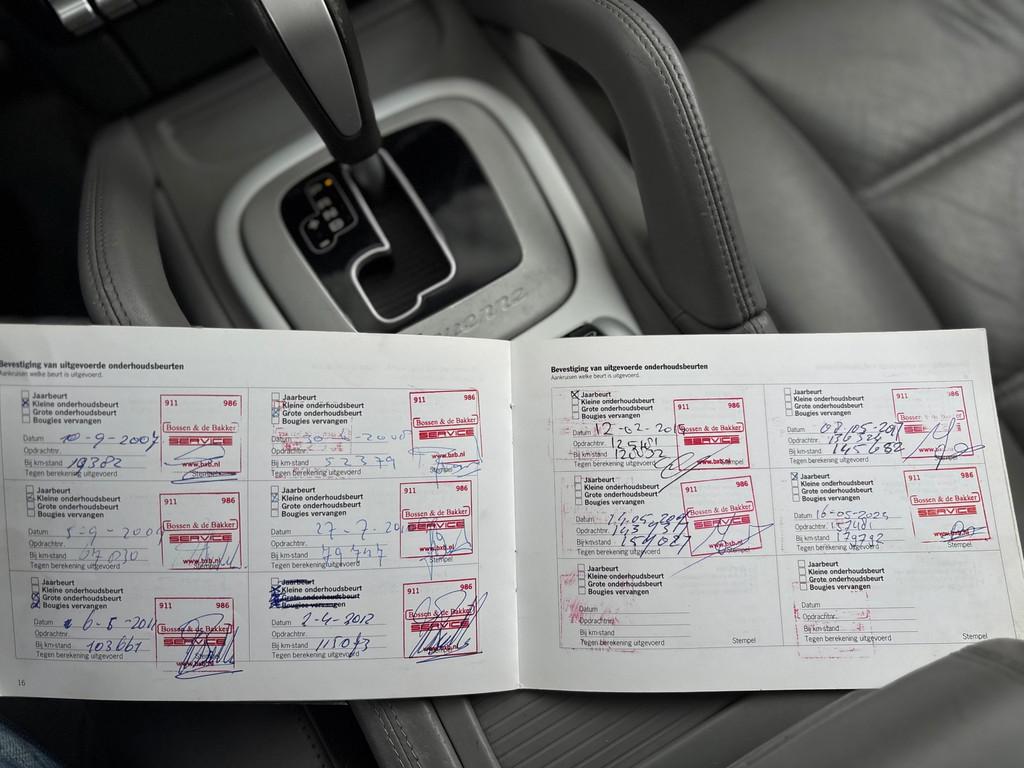 Cayenne
Bevestiging van uitgevoerde onderhoudsbeurten
Aankruisen welke beurt is uitgevoerd.
Jaarbeurt
Kleine onderhoudsbeurt
Grote onderhoudsbeurt
Bougies vervangen
Datum 10-9-2007
Opdrachtnr.
Bij km-stand 19382
Tegen berekening uitgevoerd
911 986
Bossen & de Bakker
SERVICE
www.bxb.nl
Stempel
Jaarbeurt
Kleine onderhoudsbeurt
Grote onderhoudsbeurt
Bougies vervangen
Datum
Opdrachtnr.
Bij km-stand 52379
Tegen berekening uitgevoerd
911 986
Bossen & de Bakker
SERVICE
www.bxb.nl
Stempel
Jaarbeurt
Kleine onderhoudsbeurt
Grote onderhoudsbeurt
Bougies vervangen
Datum
Opdrachtnr.
Bij km-stand
Tegen berekening uitgevoerd
911 986
Bossen & de Bakker
SERVICE
www.bxb.nl
Stempel
Jaarbeurt
Kleine onderhoudsbeurt
Grote onderhoudsbeurt
Bougies vervangen
Datum
Opdrachtnr.
Bij km-stand 79747
Tegen berekening uitgevoerd
911 986
Bossen & de Bakker
SERVICE
www.bxb.nl
Jaarbeurt
Kleine onderhoudsbeurt
Grote onderhoudsbeurt
Bougies vervangen
Datum 6-5-2011
Opdrachtnr.
Bij km-stand 103661
Tegen berekening uitgevoerd
911 986
Bossen & de Bakker
SERVICE
www.bxb.nl
Jaarbeurt
Kleine onderhoudsbeurt
Grote onderhoudsbeurt
Bougies vervangen
Datum 2-4-2012
Opdrachtnr.
Bij km-stand 115073
Tegen berekening uitgevoerd
911 986
Bossen & de Bakker
SERVICE
16
Bevestiging van uitgevoerde onderhoudsbeurten
Aankruisen welke beurt is uitgevoerd.
Jaarbeurt
Kleine onderhoudsbeurt
Grote onderhoudsbeurt
Bougies vervangen
Datum
Opdrachtnr.
Bij km-stand
Tegen berekening uitgevoerd
911 986
Bossen & de Bakker
SERVICE
www.bxb.nl
Stempel
Jaarbeurt
Kleine onderhoudsbeurt
Grote onderhoudsbeurt
Bougies vervangen
Datum
Opdrachtnr.
Bij km-stand 145682
Tegen berekening uitgevoerd
911 986
Bossen & de Bakker
Jaarbeurt
Kleine onderhoudsbeurt
Grote onderhoudsbeurt
Bougies vervangen
Datum
Opdrachtnr.
Bij km-stand
Tegen berekening uitgevoerd
911 986
Bossen & de Bakker
SERVICE
www.bxb.nl
Jaarbeurt
Kleine onderhoudsbeurt
Grote onderhoudsbeurt
Bougies vervangen
Datum
Opdrachtnr.
Bij km-stand
Tegen berekening uitgevoerd
911 986
Bossen & de Bakker
SERVICE
Stempel
Jaarbeurt
Kleine onderhoudsbeurt
Grote onderhoudsbeurt
Bougies vervangen
Datum
Opdrachtnr.
Bij km-stand
Tegen berekening uitgevoerd
Stempel
Jaarbeurt
Kleine onderhoudsbeurt
Grote onderhoudsbeurt
Bougies vervangen
Datum
Opdrachtnr.
Bij km-stand
Tegen berekening uitgevoerd
Stempel